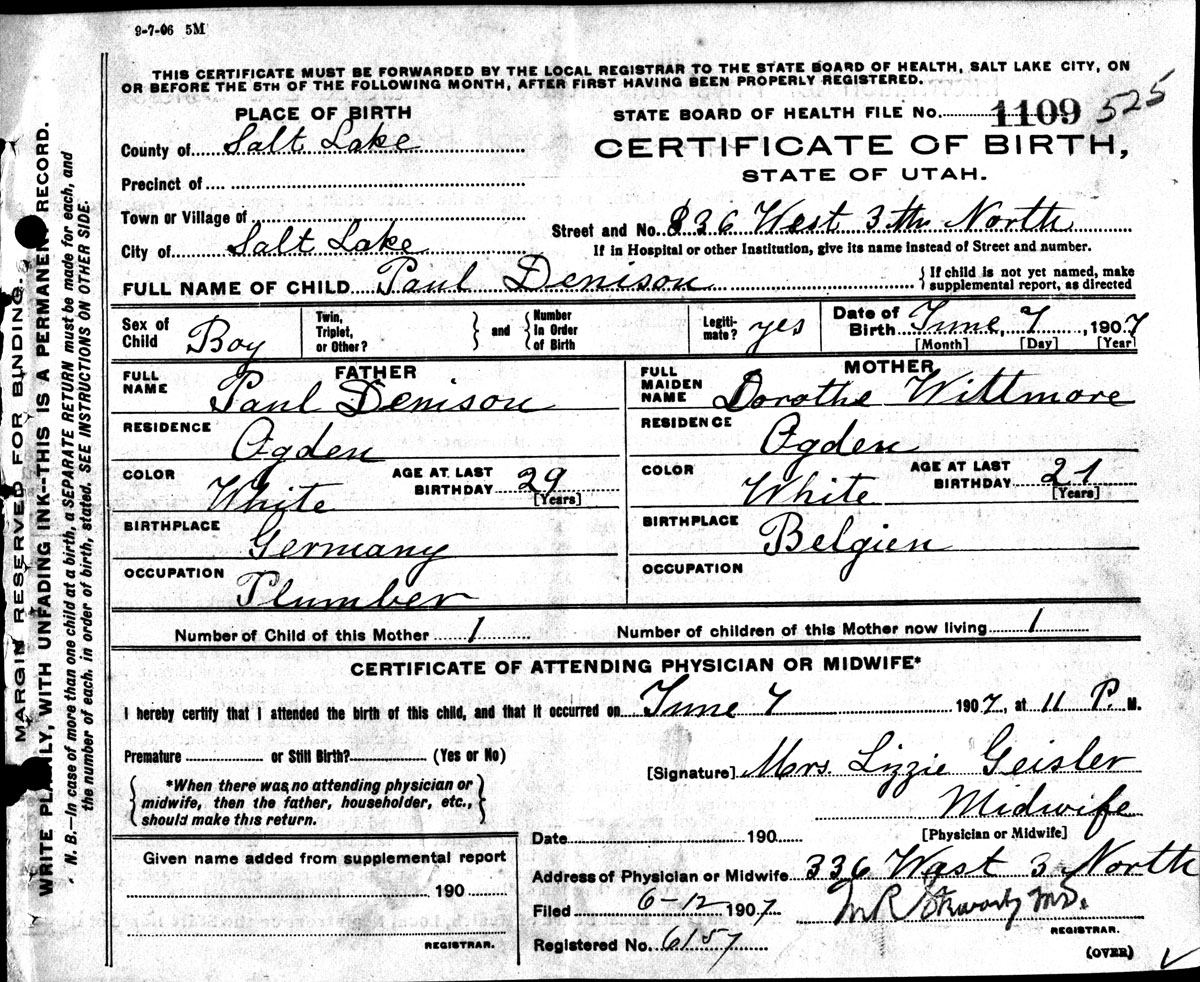 9-7-06 5M
THIS CERTIFICATE MUST BE FORWARDED BY THE LOCAL REGISTRAR TO THE STATE BOARD OF HEALTH, SALT LAKE CITY, ON
OR BEFORE THE 5TH OF THE FOLLOWING MONTH, AFTER FIRST HAVING BEEN PROPERLY REGISTERED.
PLACE OF BIRTH
County of Salt Lake
Precinct of
Town or Village of
City of Salt Lake
STATE BOARD OF HEALTH FILE No. 1109 525
CERTIFICATE OF BIRTH,
STATE OF UTAH.
Street and No. 836 West 3th North
If in Hospital or other Institution, give its name instead of Street and number.
FULL NAME OF CHILD Paul Denison
If child is not yet named, make
supplemental report, as directed
Sex of Child Boy
Twin,
Triplet,
or Other?
and
Number
in Order
of Birth
Legiti-
mate? yes
Date of
Birth June, 7, 1907
[Month] [Day] [Year]
FATHER
FULL NAME Paul Denison
RESIDENCE Ogden
COLOR White
AGE AT LAST BIRTHDAY 29
[Years]
BIRTHPLACE Germany
OCCUPATION Plumber
MOTHER
FULL MAIDEN NAME Dorothe Wittmore
RESIDENCE Ogden
COLOR White
AGE AT LAST BIRTHDAY 21
[Years]
BIRTHPLACE Belgien
OCCUPATION
Number of Child of this Mother 1
Number of children of this Mother now living 1
CERTIFICATE OF ATTENDING PHYSICIAN OR MIDWIFE*
I hereby certify that I attended the birth of this child, and that it occurred on June 7 1907, at 11 P. M.
Premature or Still Birth? (Yes or No)
*When there was no attending physician or
midwife, then the father, householder, etc.,
should make this return.
[Signature] Mrs. Lizzie Geisler
Midwife
[Physician or Midwife]
Date 190
Address of Physician or Midwife 336 West 3 North
Filed 6-12 1907
REGISTRAR.
Registered No. 6157
(OVER)
Given name added from supplemental report
190
REGISTRAR.
MARGIN RESERVED FOR BINDING.
WRITE PLAINLY, WITH UNFADING INK--THIS IS A PERMANENT RECORD.
N. B.—In case of more than one child at a birth, a SEPARATE RETURN must be made for each, and
the number of each, in order of birth, stated. SEE INSTRUCTIONS ON OTHER SIDE.